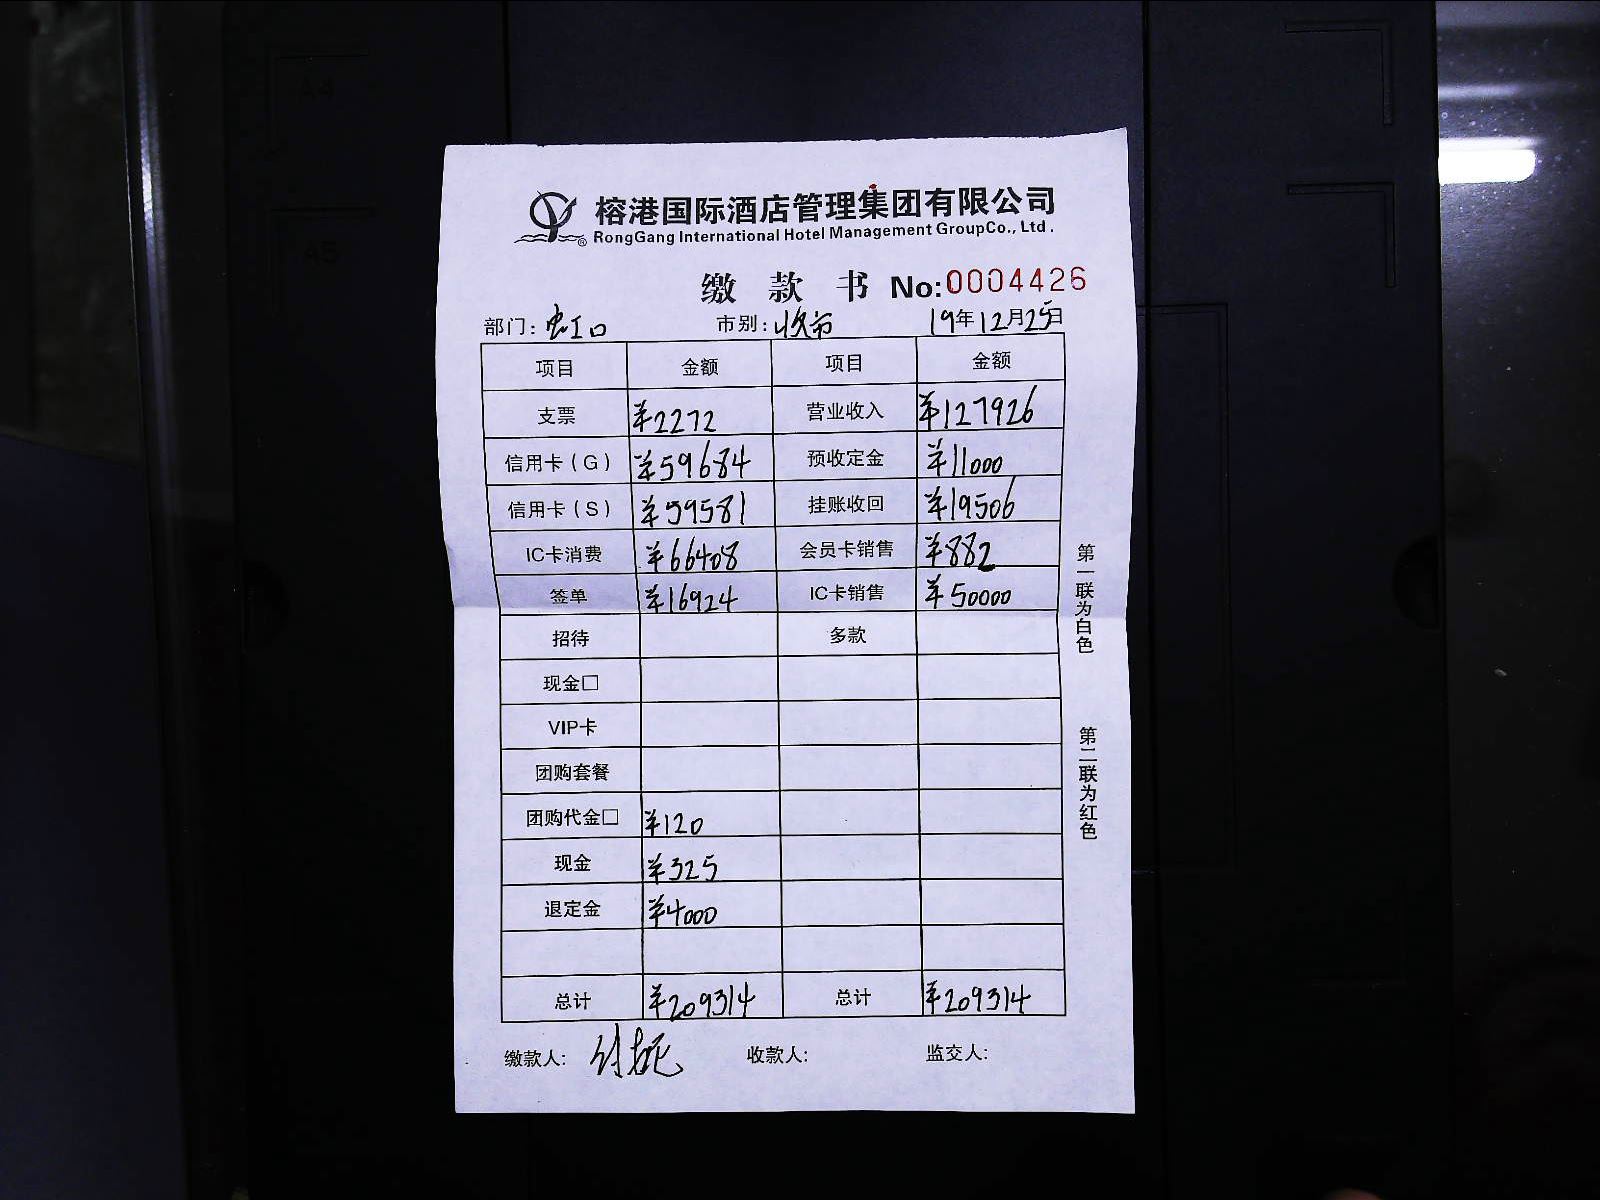 A4
A5
榕港国际酒店管理集团有限公司
RongGang International Hotel Management GroupCo., Ltd.
缴款书 No:0004426
部门:虹口 市别:收市 19年12月25日
项目 金额 项目 金额
支票 ¥2272 营业收入 ¥127926
信用卡(G) ¥59684 预收定金 ¥11000
信用卡(S) ¥59581 挂账收回 ¥19506
IC卡消费 ¥66408 会员卡销售 ¥882
签单 ¥16924 IC卡销售 ¥50000
招待 多款
现金□
VIP卡
团购套餐
团购代金□ ¥120
现金 ¥325
退定金 ¥4000
总计 ¥209314 总计 ¥209314
缴款人: 收款人: 监交人:
第一联为白色
第二联为红色